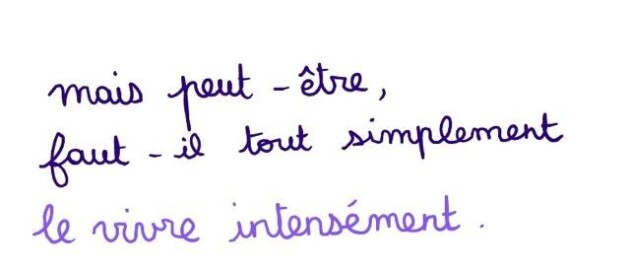 mais peut-être,
faut-il tout simplement
le vivre intensément.